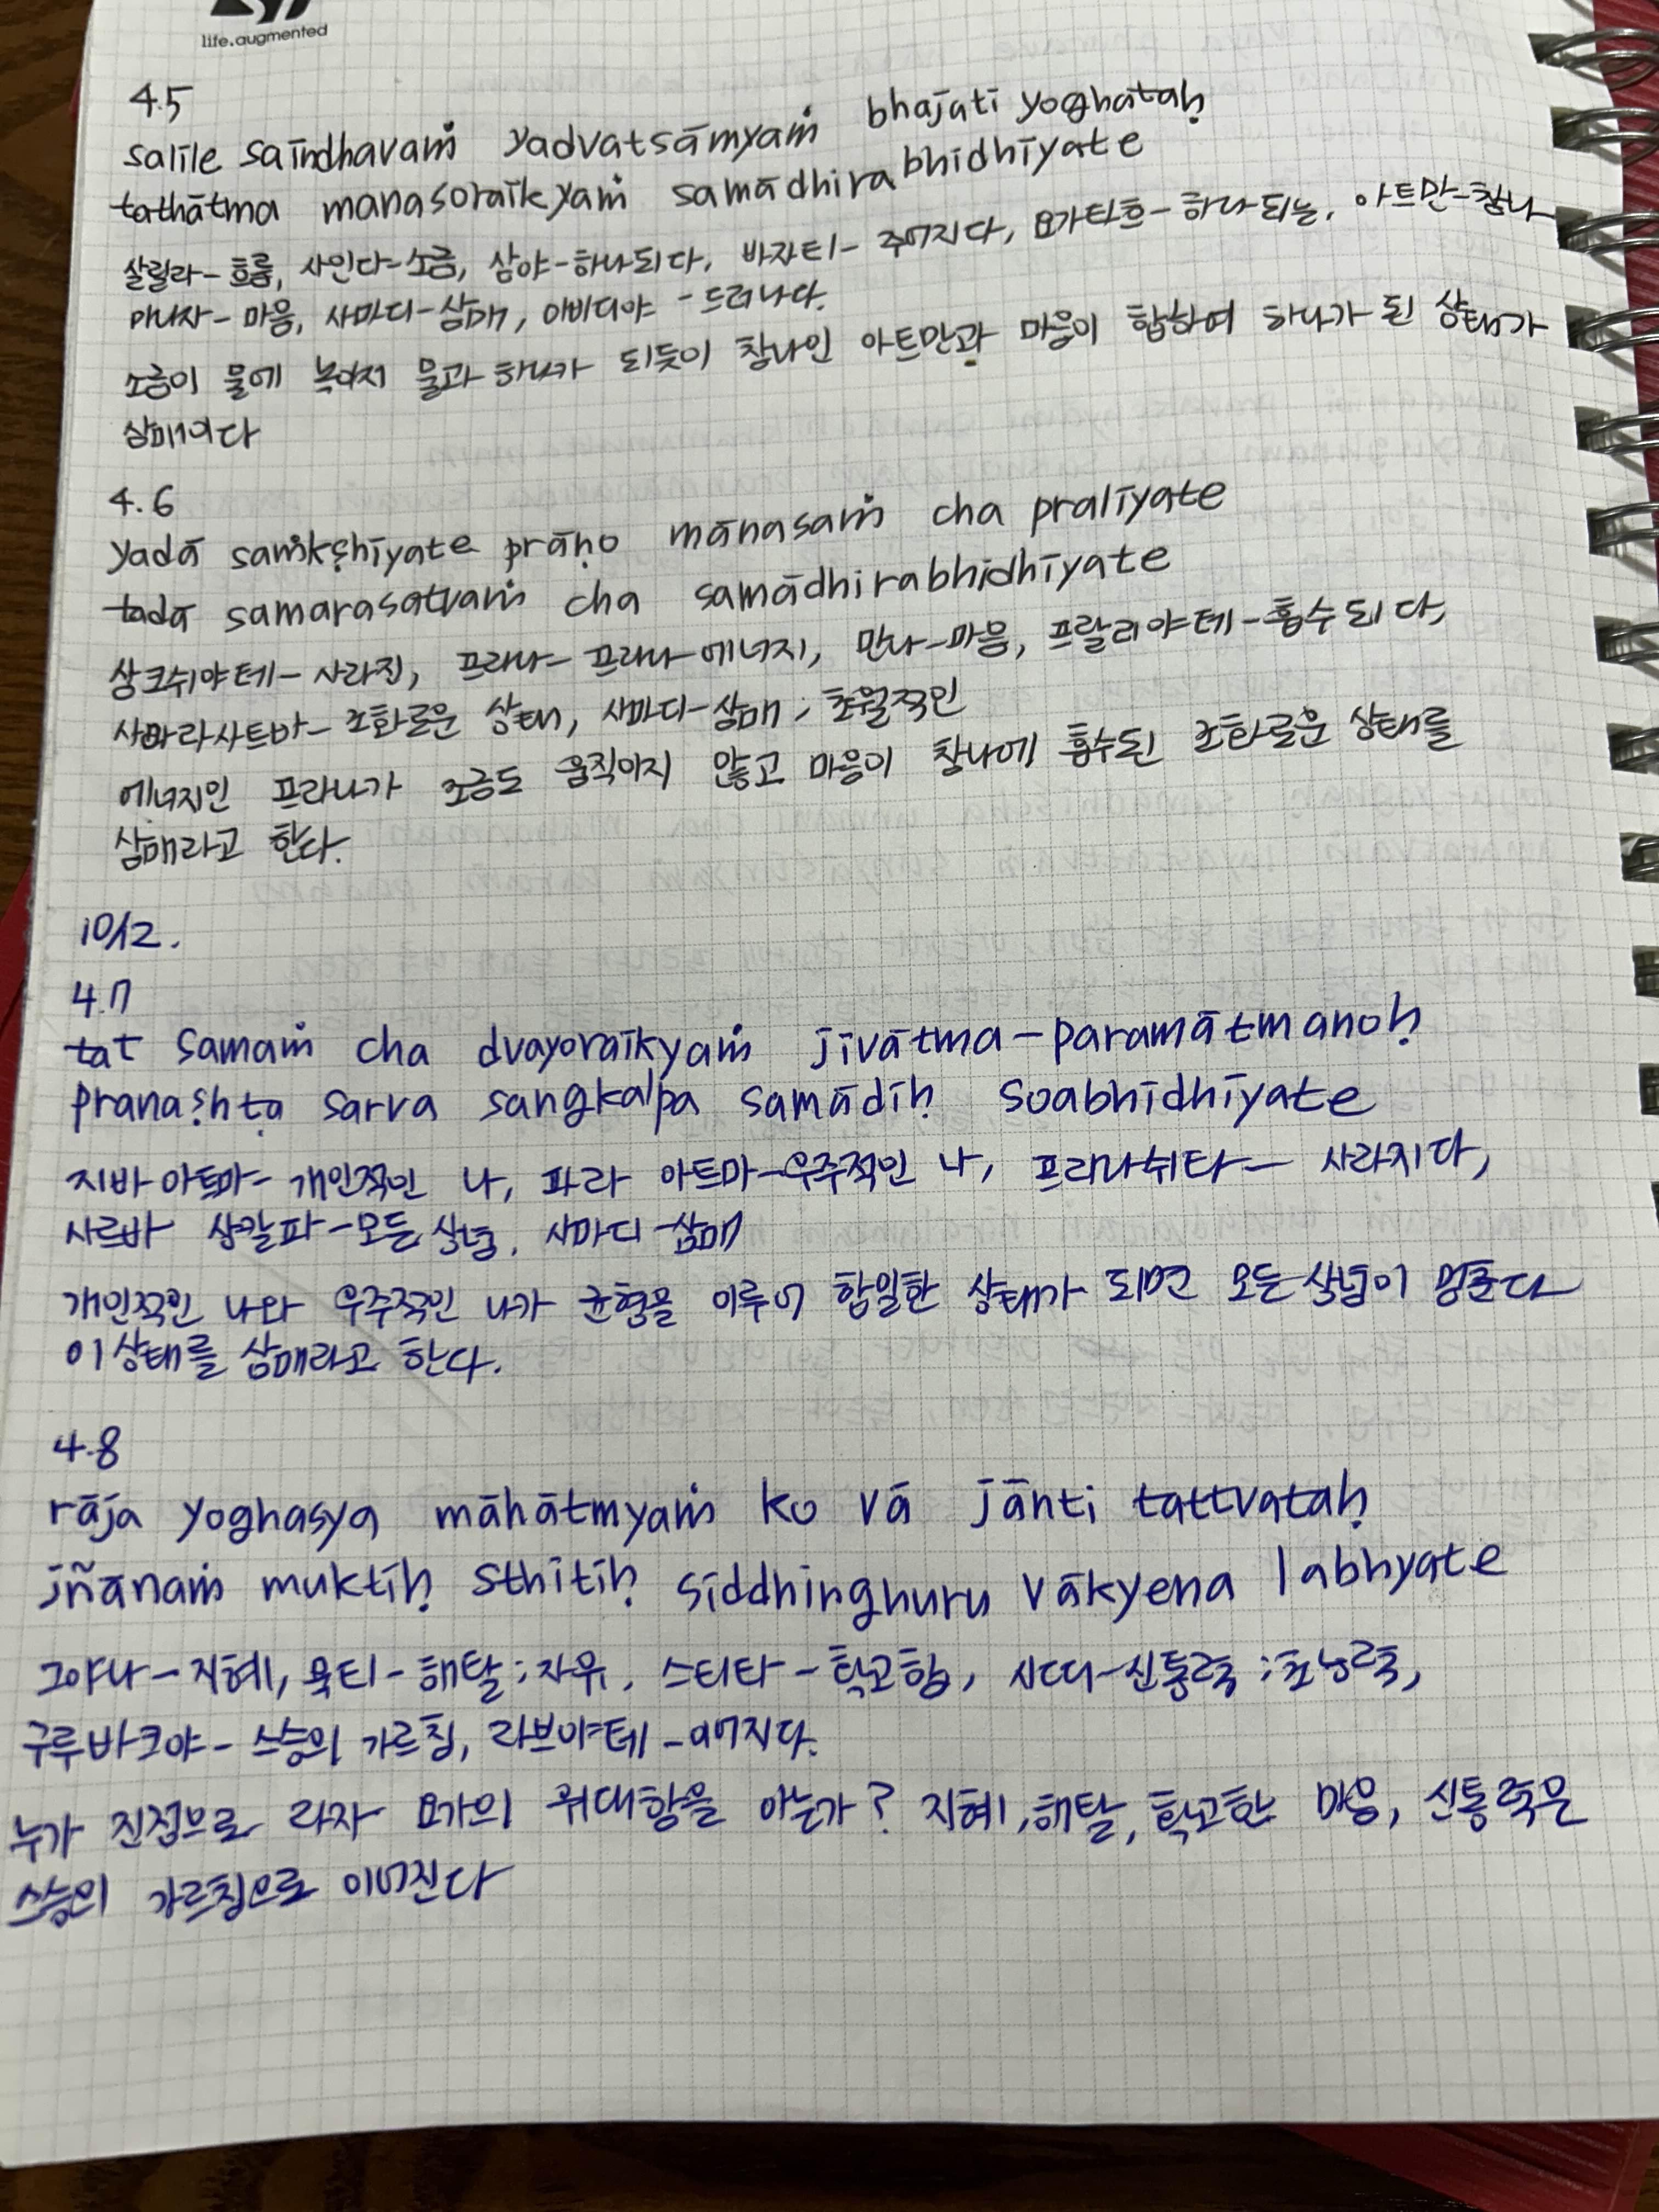 life.augmented
4.5
salile saindhavaṁ yadvatsāmyaṁ bhajati yoghataḥ
tathātma manasoraikyaṁ samādhirabhidhīyate
살릴라-흐름, 사인다-소금, 삼야-하나되다, 바자티- 주어지다, 요가타흐-하나되는, 아트만-참나
마나자- 마음, 사마디-삼매, 아비디야 - 드러나다.
소금이 물에 녹아서 물과 하나가 되듯이 참나인 아트만과 마음이 합하여 하나가 된 상태가
삼매이다
4.6
yadā saṁkṣhīyate prāṇo mānasaṁ cha pralīyate
tadā samarasatvaṁ cha samādhirabhidhīyate
상크쉬야테- 사라진, 프라나- 프라나 에너지, 만나-마음, 프랄리야테-흡수되다,
사마라사트바- 조화로운 상태, 사마디-삼매; 초월적인
에너지인 프라나가 조금도 움직이지 않고 마음이 참나에 흡수된 조화로운 상태를
삼매라고 한다.
10/12.
4.7
tat samaṁ cha dvayoraikyaṁ jīvātma-paramātmanoḥ
pranaṣhṭa sarva sangkalpa samādiḥ soabhidhīyate
지바 아트마- 개인적인 나, 파라 아트마-우주적인 나, 프라나쉬타- 사라지다,
사르바 상칼파-모든 상념, 사마디-삼매
개인적인 나와 우주적인 나가 균형을 이루어 합일한 상태가 되면 모든 상념이 멈춘다
이상태를 삼매라고 한다.
4.8
rāja yoghasya māhātmyaṁ ko vā jānti tattvataḥ
jñānaṁ muktiḥ sthitiḥ siddhinghuru vākyena labhyate
그야나-지혜, 묵티-해탈;자유, 스티타-확고함, 시띠-신통력;초능력,
구루바크야- 스승의 가르침, 라브야테-이어지다.
누가 진정으로 라자 요가의 위대함을 아는가? 지혜,해탈,확고한 마음, 신통력은
스승의 가르침으로 이어진다